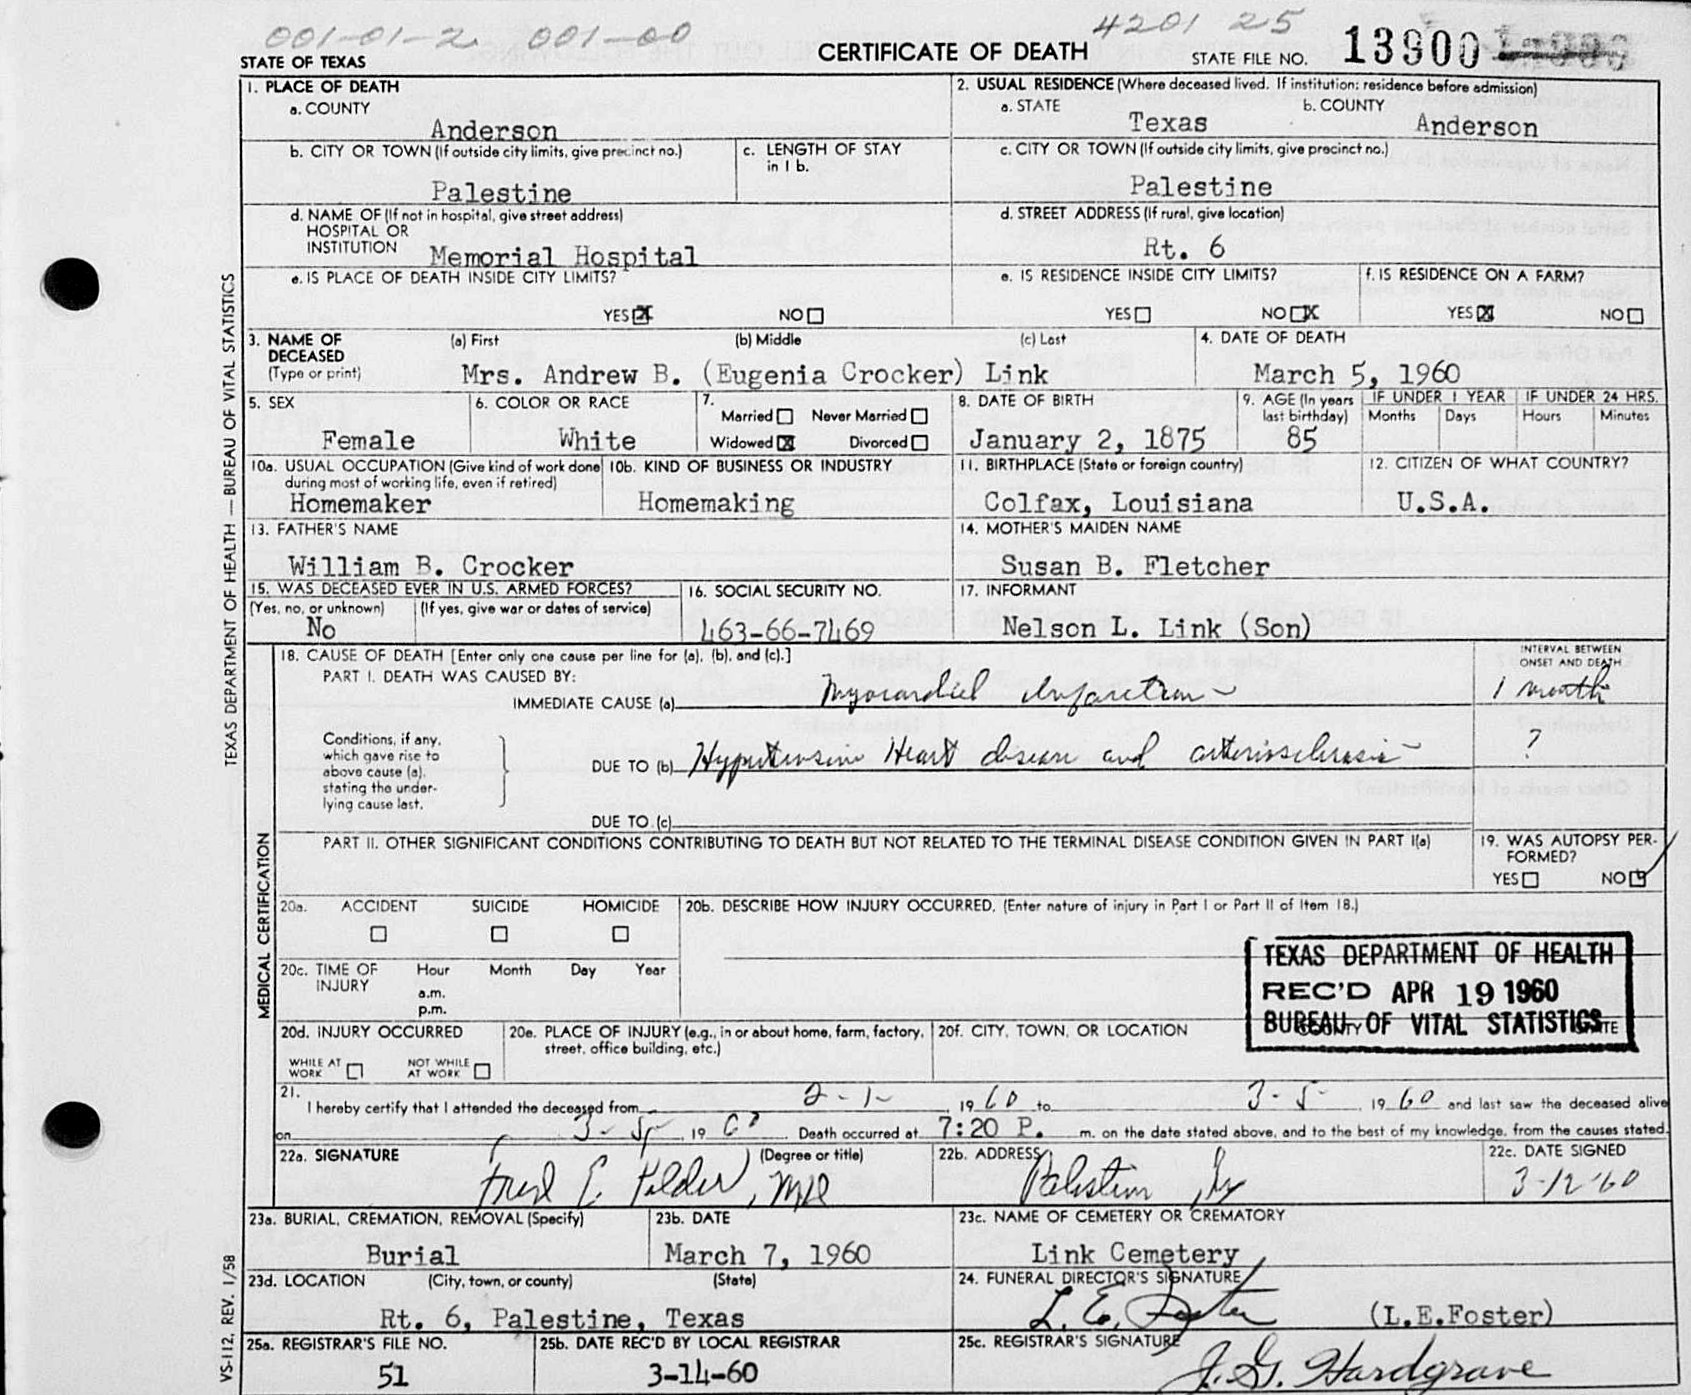 001-01-2 001-00
4201 25
STATE OF TEXAS
CERTIFICATE OF DEATH
STATE FILE NO. 13900
1. PLACE OF DEATH
a. COUNTY
Anderson
2. USUAL RESIDENCE (Where deceased lived. If institution: residence before admission)
a. STATE
Texas
b. COUNTY
Anderson
b. CITY OR TOWN (If outside city limits, give precinct no.)
Palestine
c. LENGTH OF STAY
in 1 b.
c. CITY OR TOWN (If outside city limits, give precinct no.)
Palestine
d. NAME OF (If not in hospital, give street address)
HOSPITAL OR
INSTITUTION
Memorial Hospital
d. STREET ADDRESS (If rural, give location)
Rt. 6
e. IS PLACE OF DEATH INSIDE CITY LIMITS?
YES X NO
e. IS RESIDENCE INSIDE CITY LIMITS?
YES NO X
f. IS RESIDENCE ON A FARM?
YES X NO
3. NAME OF
DECEASED
(Type or print)
(a) First (b) Middle (c) Last
Mrs. Andrew B. (Eugenia Crocker) Link
4. DATE OF DEATH
March 5, 1960
5. SEX
Female
6. COLOR OR RACE
White
7.
Married Never Married
Widowed X Divorced
8. DATE OF BIRTH
January 2, 1875
9. AGE (In years
last birthday)
85
IF UNDER 1 YEAR
Months Days
IF UNDER 24 HRS.
Hours Minutes
10a. USUAL OCCUPATION (Give kind of work done
during most of working life, even if retired)
Homemaker
10b. KIND OF BUSINESS OR INDUSTRY
Homemaking
11. BIRTHPLACE (State or foreign country)
Colfax, Louisiana
12. CITIZEN OF WHAT COUNTRY?
U.S.A.
13. FATHER'S NAME
William B. Crocker
14. MOTHER'S MAIDEN NAME
Susan B. Fletcher
15. WAS DECEASED EVER IN U.S. ARMED FORCES?
(Yes, no, or unknown) (If yes, give war or dates of service)
No
16. SOCIAL SECURITY NO.
463-66-7469
17. INFORMANT
Nelson L. Link (Son)
18. CAUSE OF DEATH [Enter only one cause per line for (a), (b), and (c).]
PART I. DEATH WAS CAUSED BY:
IMMEDIATE CAUSE (a) Myocardial Infarction
INTERVAL BETWEEN
ONSET AND DEATH
1 month
Conditions, if any,
which gave rise to
above cause (a),
stating the under-
lying cause last.
DUE TO (b) Hypertensive Heart disease and arteriosclerosis
?
DUE TO (c)
PART II. OTHER SIGNIFICANT CONDITIONS CONTRIBUTING TO DEATH BUT NOT RELATED TO THE TERMINAL DISEASE CONDITION GIVEN IN PART I(a)
19. WAS AUTOPSY PER-
FORMED?
YES NO
20a. ACCIDENT SUICIDE HOMICIDE
20b. DESCRIBE HOW INJURY OCCURRED. (Enter nature of injury in Part I or Part II of Item 18.)
20c. TIME OF
INJURY
Hour Month Day Year
a.m.
p.m.
TEXAS DEPARTMENT OF HEALTH
REC'D APR 19 1960
BUREAU OF VITAL STATISTICS
20d. INJURY OCCURRED
WHILE AT
WORK
NOT WHILE
AT WORK
20e. PLACE OF INJURY (e.g., in or about home, farm, factory,
street, office building, etc.)
20f. CITY, TOWN, OR LOCATION
COUNTY STATE
21.
I hereby certify that I attended the deceased from 2-1- 1960 to 3-5- 1960 and last saw the deceased alive
on 3-5- 1960. Death occurred at 7:20 P. m. on the date stated above, and to the best of my knowledge, from the causes stated.
22a. SIGNATURE (Degree or title)
Fred E. Felder, MD
22b. ADDRESS
Palestine
22c. DATE SIGNED
3-12-60
23a. BURIAL, CREMATION, REMOVAL (Specify)
Burial
23b. DATE
March 7, 1960
23c. NAME OF CEMETERY OR CREMATORY
Link Cemetery
23d. LOCATION (City, town, or county) (State)
Rt. 6, Palestine, Texas
24. FUNERAL DIRECTOR'S SIGNATURE
L. E. Foster (L.E.Foster)
25a. REGISTRAR'S FILE NO.
51
25b. DATE REC'D BY LOCAL REGISTRAR
3-14-60
25c. REGISTRAR'S SIGNATURE
J. G. Hardgrave
TEXAS DEPARTMENT OF HEALTH — BUREAU OF VITAL STATISTICS
MEDICAL CERTIFICATION
VS-112, REV. 1/58